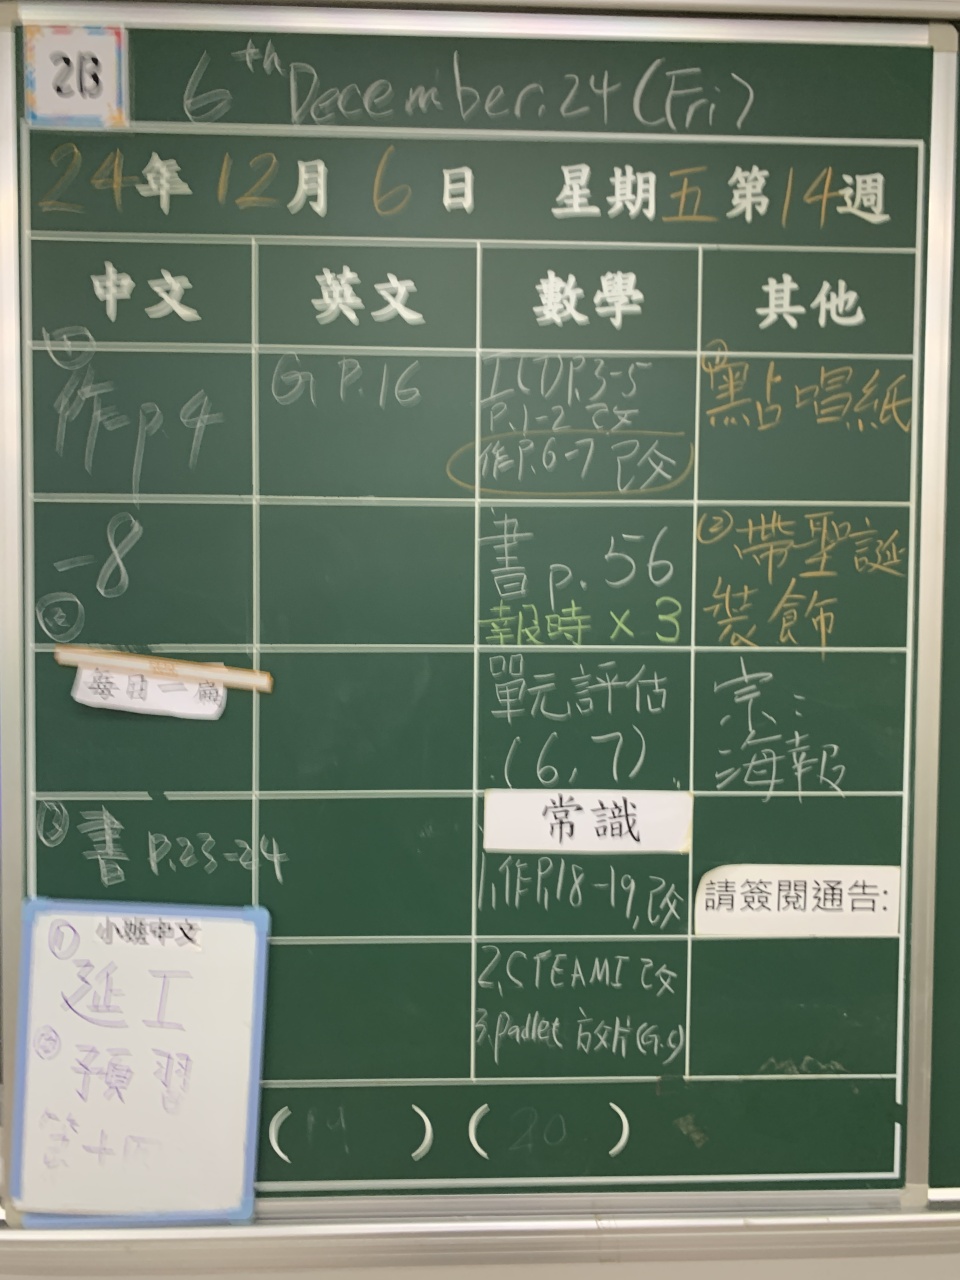 2B
6th December.24 (Fri)
24年12月6日 星期五第14週
中文 英文 數學 其他
① 作 p.4
-8
②
每日一扁
③ 書 P.23-24
小班中文
① 延工
② 預習
第十四
G P.16
工(7)P.3-5
P.1-2 改
作P.6-7 已交
書 p. 56
報時 x 3
單元評估
(6, 7)
常識
1.作P.18-19,已交
2.STEAM1 已交
3.Padlet 放片(G.S)
① 點唱紙
② 帶聖誕
裝飾
宗:
海報
請簽閱通告:
( 19 ) ( 20 )